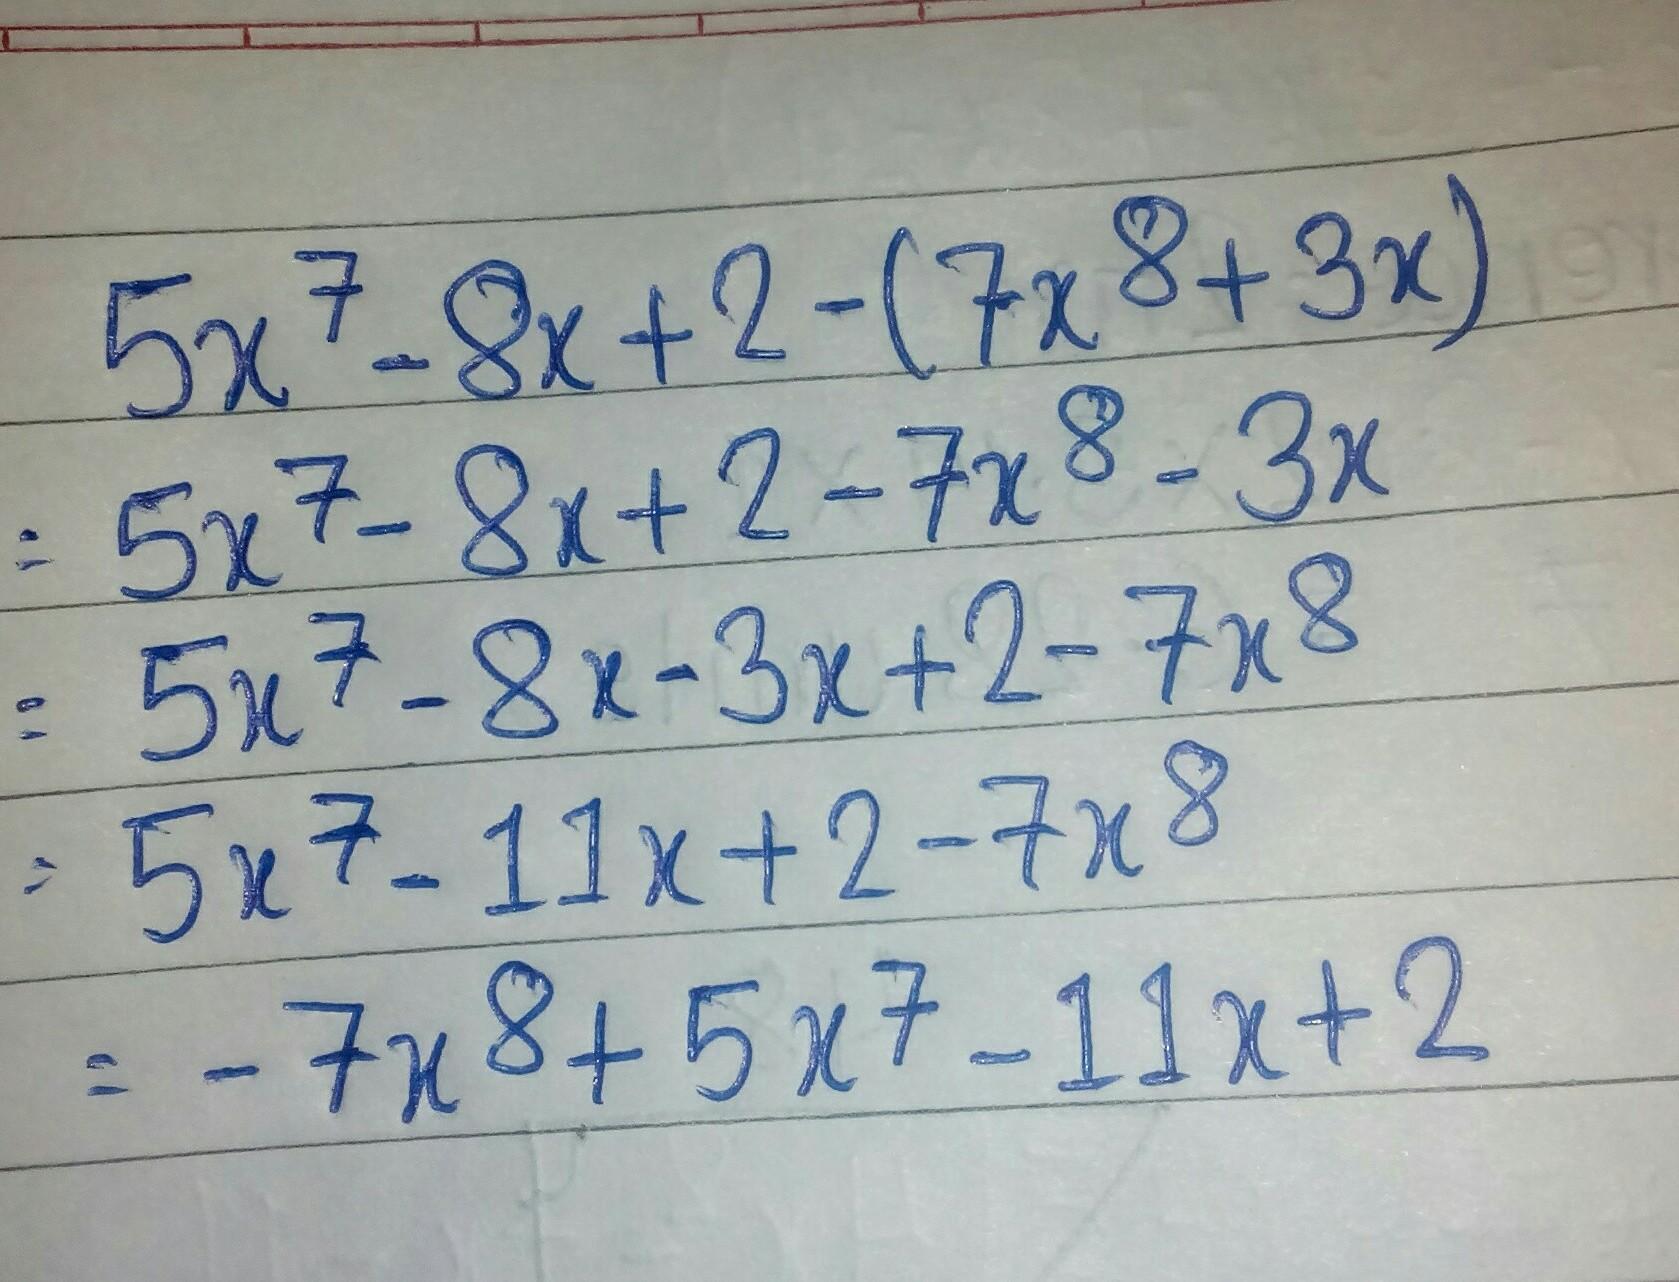 5x⁷-8x+2-(7x⁸+3x)
= 5x⁷-8x+2-7x⁸-3x
= 5x⁷-8x-3x+2-7x⁸
= 5x⁷-11x+2-7x⁸
= -7x⁸+5x⁷-11x+2